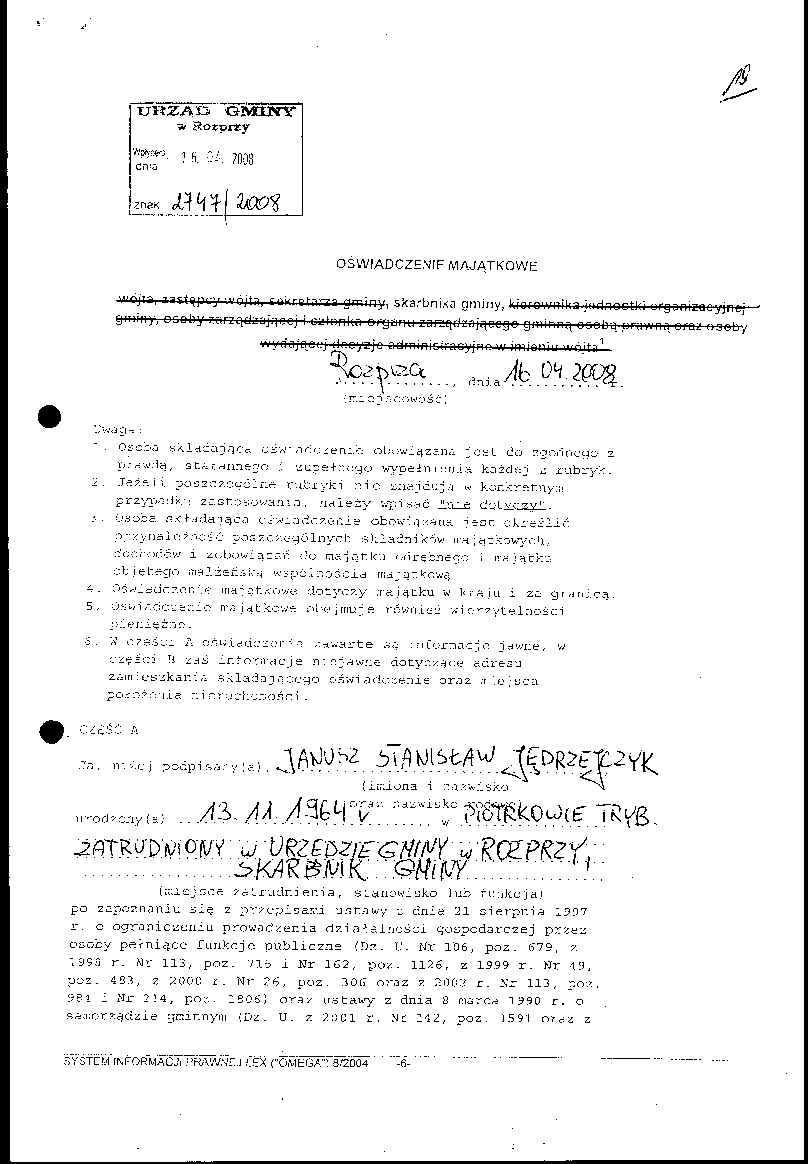 19
URZĄD GMINY
w Rozprzy
Wpłynęło
dnia 16. 04. 2008
znak 2747/2008
OŚWIADCZENIE MAJĄTKOWE
wójta, zastępcy wójta, sekretarza gminy, skarbnika gminy, kierownika jednostki organizacyjnej
gminy, osoby zarządzającej i członka organu zarządzającego gminną osobą prawną oraz osoby
wydającej decyzje administracyjne w imieniu wójta1
Rozprza, dnia 16.04.2008
(miejscowość)
Uwaga:
1. Osoba składająca oświadczenie obowiązana jest do zgodnego z
prawdą, starannego i zupełnego wypełnienia każdej z rubryk.
2. Jeżeli poszczególne rubryki nie znajdują w konkretnym
przypadku zastosowania, należy wpisać "nie dotyczy".
3. Osoba składająca oświadczenie obowiązana jest określić
przynależność poszczególnych składników majątkowych,
dochodów i zobowiązań do majątku odrębnego i majątku
objętego małżeńską wspólnością majątkową.
4. Oświadczenie majątkowe dotyczy majątku w kraju i za granicą.
5. Oświadczenie majątkowe obejmuje również wierzytelności
pieniężne.
6. W części A oświadczenia zawarte są informacje jawne, w
części B zaś informacje niejawne dotyczące adresu
zamieszkania składającego oświadczenie oraz miejsca
położenia nieruchomości.
CZĘŚĆ A
Ja, niżej podpisany(a), JANUSZ STANISŁAW JĘDRZEJCZYK
(imiona i nazwisko
oraz nazwisko
urodzony(a) 13.11.1964 w PIOTRKOWIE TRYB.
ZATRUDNIONY W URZĘDZIE GMINY W ROZPRZY,
SKARBNIK GMINY
(miejsce zatrudnienia, stanowisko lub funkcja)
po zapoznaniu się z przepisami ustawy z dnia 21 sierpnia 1997
r. o ograniczeniu prowadzenia działalności gospodarczej przez
osoby pełniące funkcje publiczne (Dz. U. Nr 106, poz. 679, z
1998 r. Nr 113, poz. 715 i Nr 162, poz. 1126, z 1999 r. Nr 49,
poz. 483, z 2000 r. Nr 26, poz. 306 oraz z 2002 r. Nr 113, poz.
984 i Nr 214, poz. 1806) oraz ustawy z dnia 8 marca 1990 r. o
samorządzie gminnym (Dz. U. z 2001 r. Nr 142, poz. 1591 oraz z
SYSTEM INFORMACJI PRAWNEJ LEX ("OMEGA") 8/2004 -6-